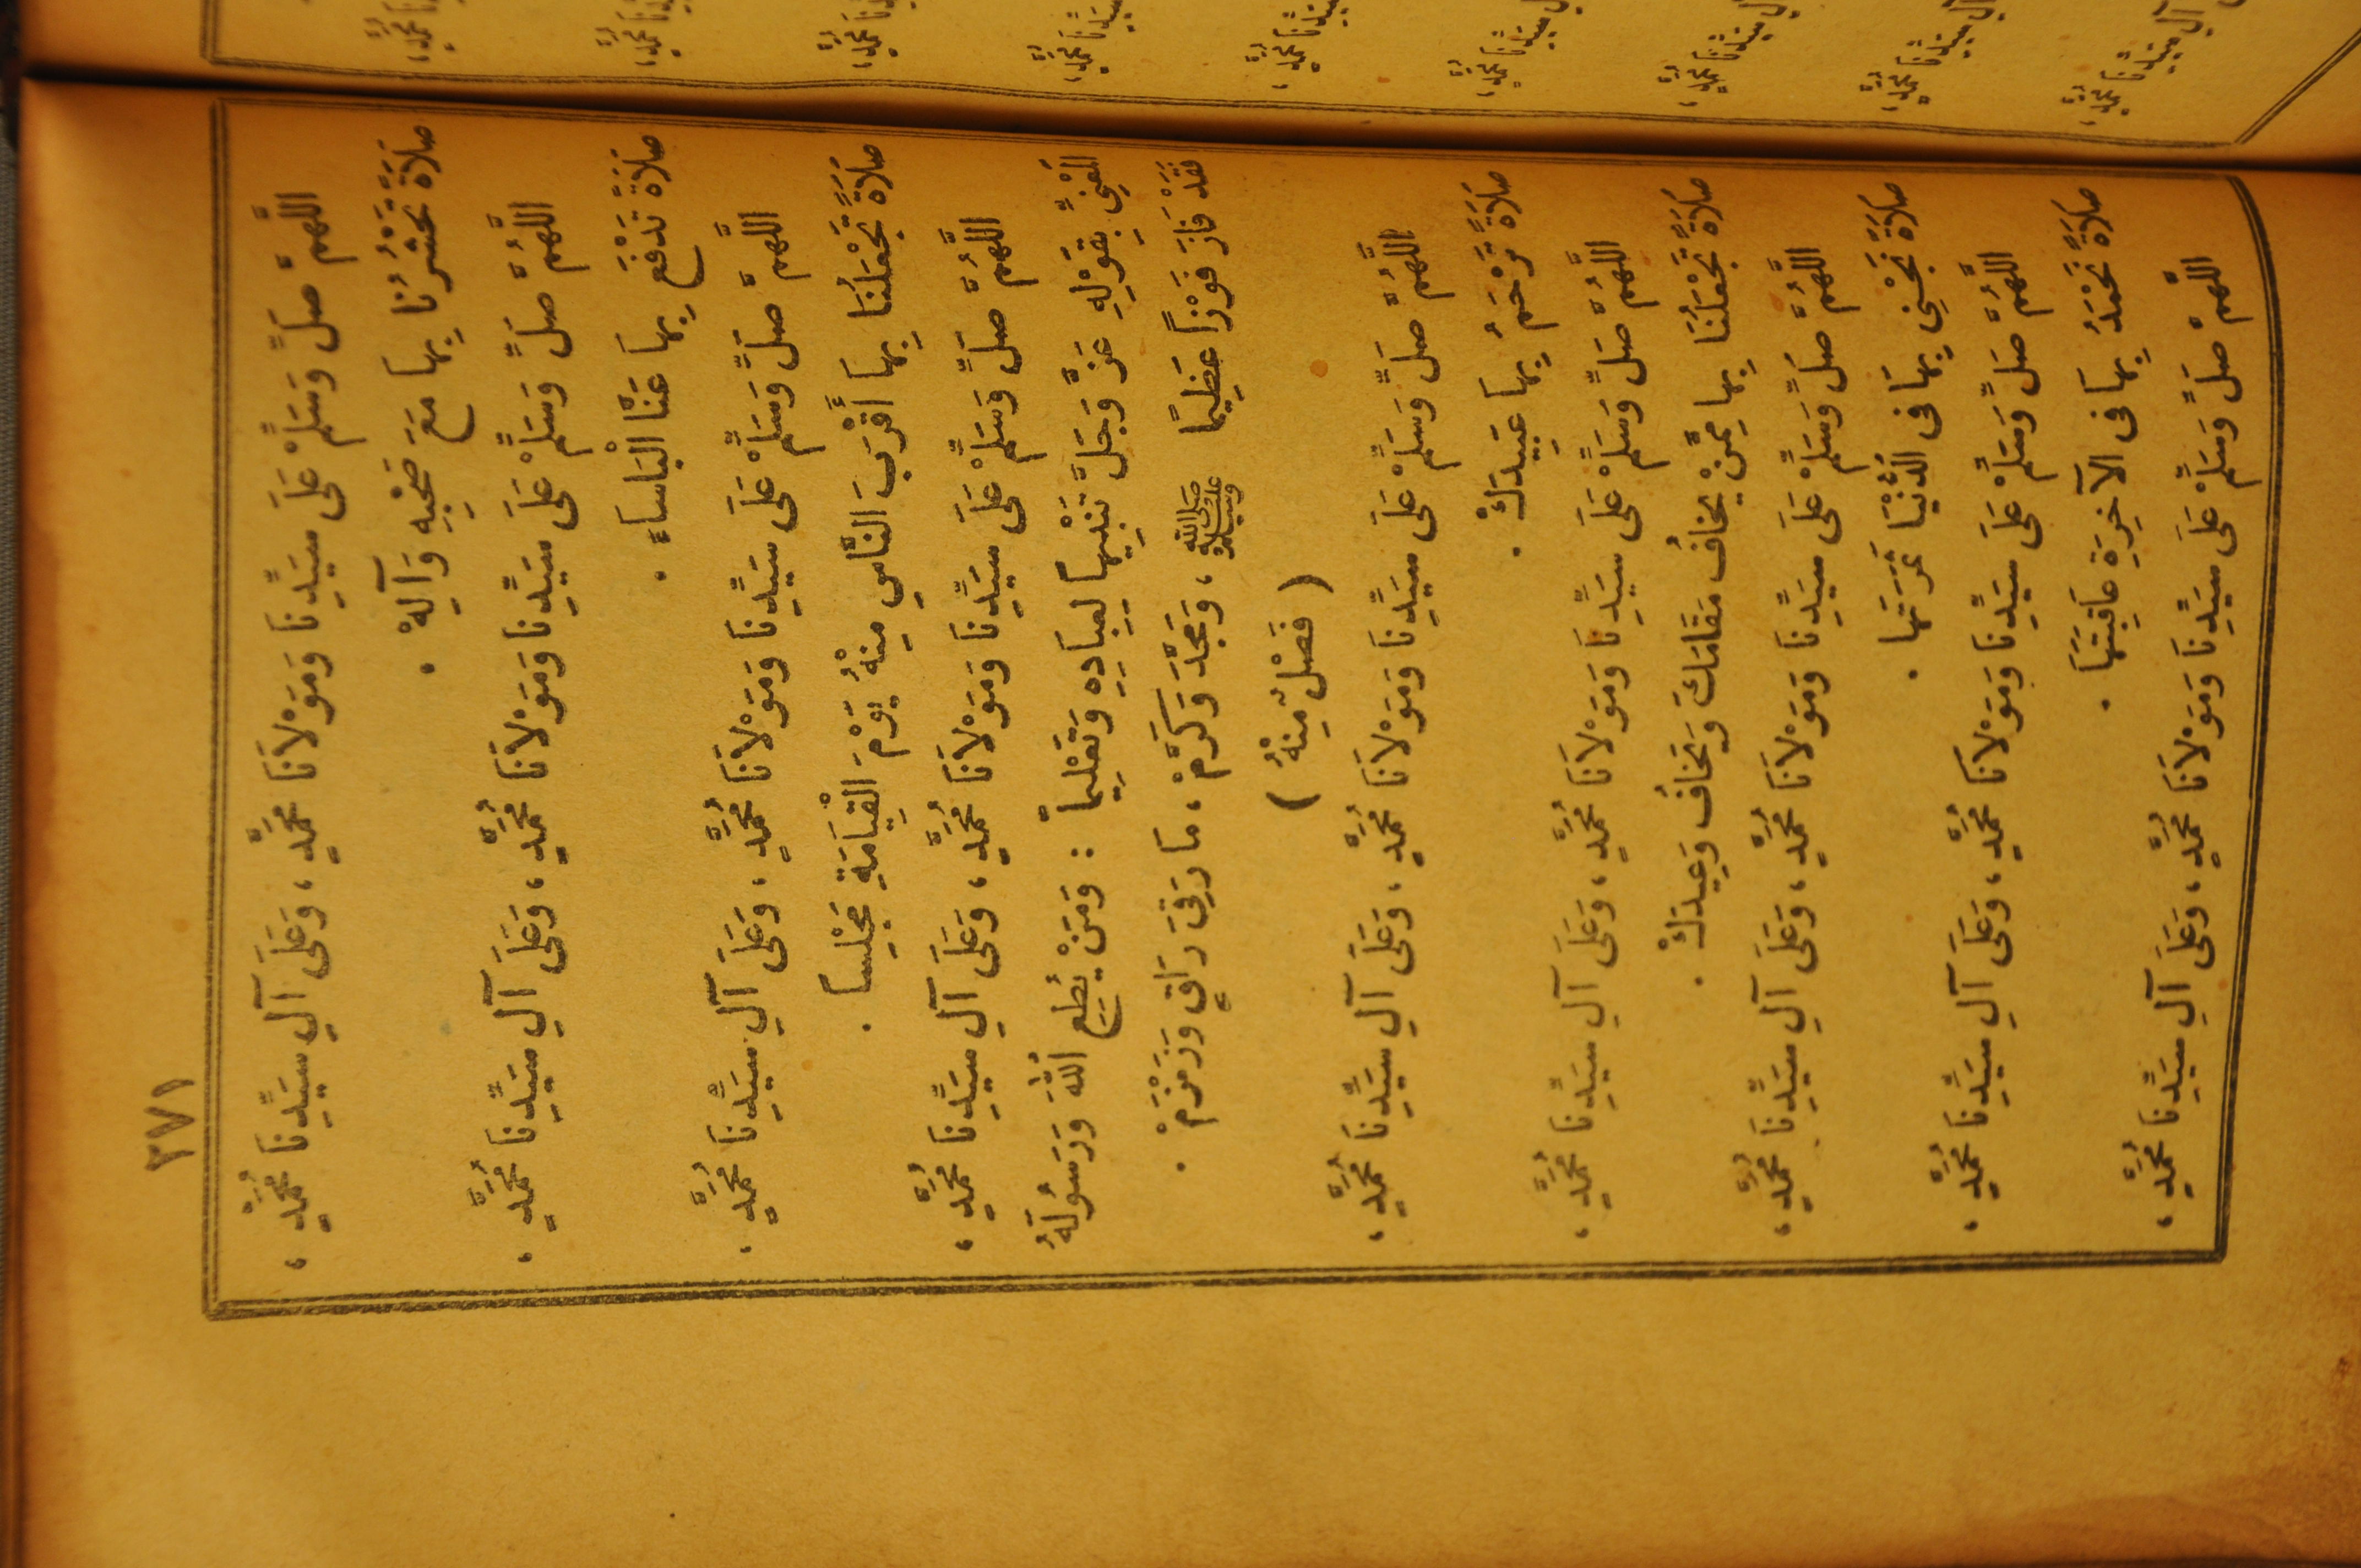 ٢٧١
اللَّهُمَّ صَلِّ وَسَلِّمْ عَلَى سَيِّدِنَا وَمَوْلَانَا مُحَمَّدٍ، وَعَلَى آلِ سَيِّدِنَا مُحَمَّدٍ،
صَلَاةً تَحْشُرُنَا بِهَا مَعَ صَحْبِهِ وَآلِهْ.
اللَّهُمَّ صَلِّ وَسَلِّمْ عَلَى سَيِّدِنَا وَمَوْلَانَا مُحَمَّدٍ، وَعَلَى آلِ سَيِّدِنَا مُحَمَّدٍ،
صَلَاةً تَدْفَعُ بِهَا عَنَّا الْبَاسَاءَ.
اللَّهُمَّ صَلِّ وَسَلِّمْ عَلَى سَيِّدِنَا وَمَوْلَانَا مُحَمَّدٍ، وَعَلَى آلِ سَيِّدِنَا مُحَمَّدٍ،
صَلَاةً تَجْعَلُنَا بِهَا أَقْرَبَ النَّاسِ مِنْهُ يَوْمَ الْقِيَامَةِ مَجْلِسا.
اللَّهُمَّ صَلِّ وَسَلِّمْ عَلَى سَيِّدِنَا وَمَوْلَانَا مُحَمَّدٍ، وَعَلَى آلِ سَيِّدِنَا مُحَمَّدٍ،
الْمَعْنِيِّ بِقَوْلِهِ عَزَّ وَجَلَّ تَنْبِيهاً لِعِبَادِهِ وَتَعْلِيماً : وَمَنْ يُطِعِ اللَّهَ وَرَسُولَهُ
فَقَدْ فَازَ فَوْزًا عَظِيمًا ﷺ، وَمَجَّدَ وَكَرَّمْ، مَا رَقِىَ رَاقٍ وَزَمْزَمْ.
( فَصْلٌ مِنْهُ )
اللَّهُمَّ صَلِّ وَسَلِّمْ عَلَى سَيِّدِنَا وَمَوْلَانَا مُحَمَّدٍ، وَعَلَى آلِ سَيِّدِنَا مُحَمَّدٍ،
صَلَاةً تَرْحَمُ بِهَا عَبِيدَكْ.
اللَّهُمَّ صَلِّ وَسَلِّمْ عَلَى سَيِّدِنَا وَمَوْلَانَا مُحَمَّدٍ، وَعَلَى آلِ سَيِّدِنَا مُحَمَّدٍ،
صَلَاةً تَجْعَلُنَا بِهَا مِمَّنْ يَخَافُ مَقَامَكَ وَيَخَافُ وَعِيدَكْ.
اللَّهُمَّ صَلِّ وَسَلِّمْ عَلَى سَيِّدِنَا وَمَوْلَانَا مُحَمَّدٍ، وَعَلَى آلِ سَيِّدِنَا مُحَمَّدٍ،
صَلَاةً نَجْنِى بِهَا فِى الدُّنْيَا ثَمَرَتَهَا.
اللَّهُمَّ صَلِّ وَسَلِّمْ عَلَى سَيِّدِنَا وَمَوْلَانَا مُحَمَّدٍ، وَعَلَى آلِ سَيِّدِنَا مُحَمَّدٍ،
صَلَاةً نَحْمَدُ بِهَا فِى الآخِرَةِ عَاقِبَتَهَا.
اللَّهُمَّ صَلِّ وَسَلِّمْ عَلَى سَيِّدِنَا وَمَوْلَانَا مُحَمَّدٍ، وَعَلَى آلِ سَيِّدِنَا مُحَمَّدٍ،